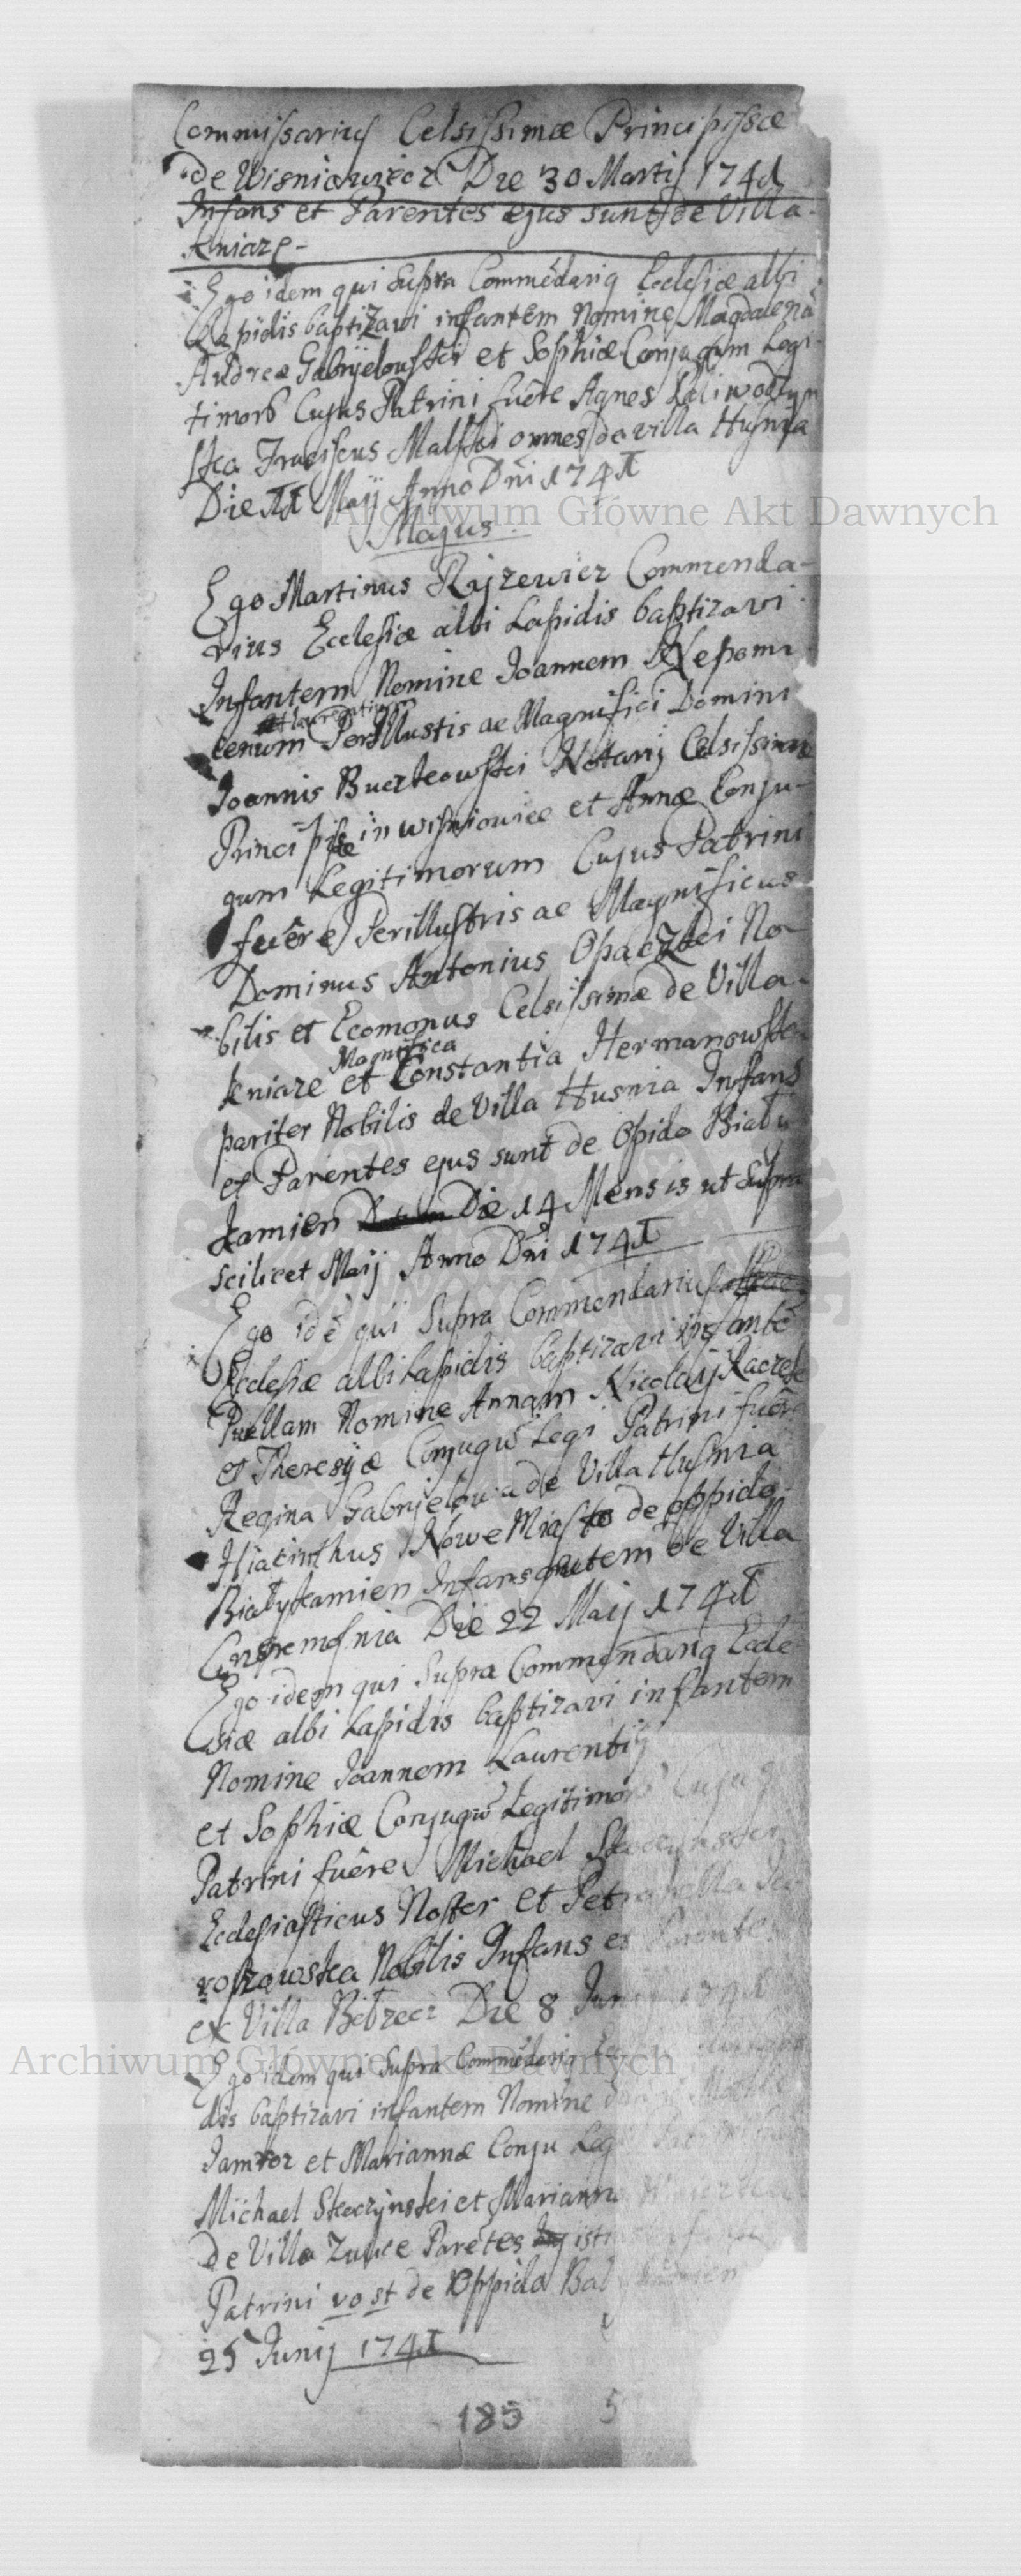 Commissarius Celsissimæ Principissæ
de Wisniowiecz Die 30 Martij 1741
Infans et Parentes ejus sunt de Villa
Kniaze
Ego idem qui Supra Commēdariq Ecclesiæ albi
Lapidis baptizavi infantem Nomine Magdalenā
Andreæ Gabryelowski et Sophiæ Conjugum Legi-
timorū Cujus Patrini fuêre Agnes
ska Franciscus Malski omnes de villa Husnia
Die 11 Maij Anno Dñi 1741
Majus
Ego Martinus Ryzewicz Commenda-
rius Ecclesiæ albi Lapidis baptizavi
Infantem Nomine Joannem Nepomu-
et Laurentium
cenum Perillustis ac Magnifici Domini
Joannis Buczkowski Notarij Celsissimæ
Principissæ in Wisniowiec et Annæ Conju-
gum Legitimorum Cujus Patrini
fuêre Perillustris ac Magnificus
Dominus Antonius Opaczki No-
bilis et Ecomonus Celsissimæ de Villa
Magnifica
Kniaze et Constantia Hermanowska
pariter Nobilis de Villa Husnia Infans
et Parentes ejus sunt de Opido Biały
kamien Die 14 Mensis ut Supra
scilicet Maij Anno Dñi 1741
Ego idē qui Supra Commendarius
Ecclesiæ albi Lapidis baptizavi infantē
Puellam Nomine Annam Nicolaij
et Theresijæ Conjugū Legi Patrini fuêre
Regina Gabryelowa de Villa Husnia
Hiacinthus Nowe Miasto de oppido
Białykamien Infans autem de Villa
Czeremosnia Die 22 Maij 1741
Ego idem qui Supra Commendariq Eccle
siæ albi Lapidis baptizavi infantem
Nomine Joannem Laurentij
et Sophiæ Conjugū Legitimorū Cujus
Patrini fuêre Michael Skoczynski
Ecclesiasticus Noster et Petronella
roszowska Nobilis Infans et Parentes
ex Villa Bełzec Die 8 Junij 1741
Ego idem qui Supra Commēdariq
dis baptizavi infantem Nomine
Jamroz et Mariannæ Conju Leg
Michael Skoczynski et Marianna
de Villa Zulice Parētes isti
Patrini vo st de Oppido
25 Junij 1741
185
5
Archiwum Główne Akt Dawnych
Archiwum Główne Akt Dawnych